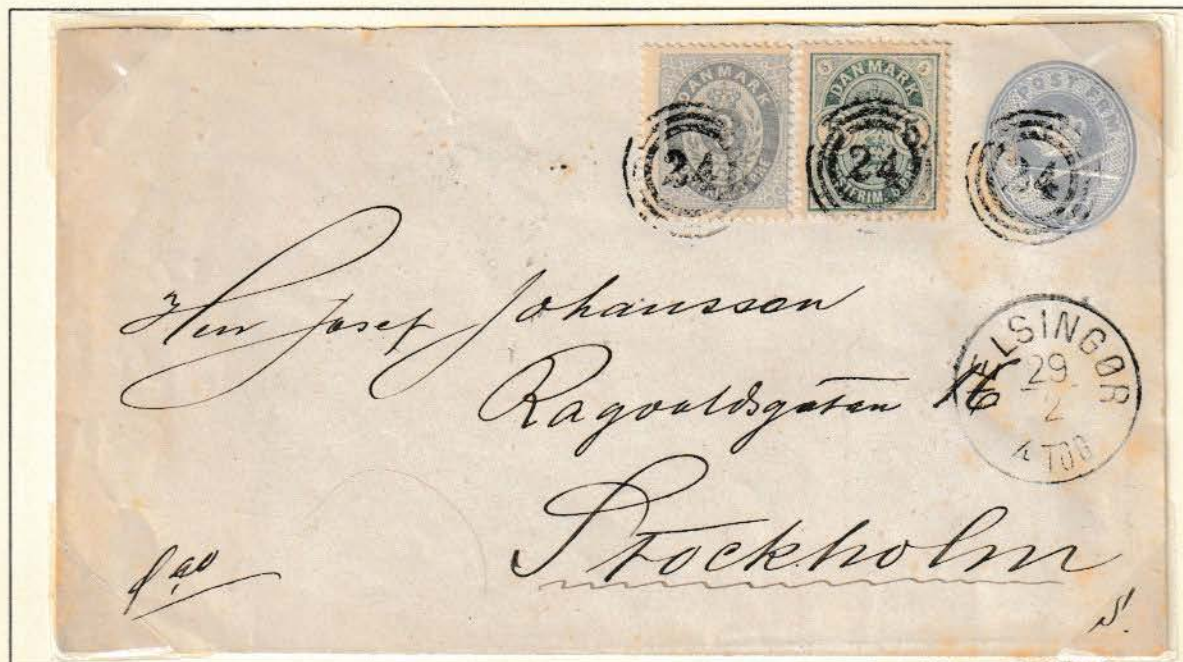 DANMARK
ØRE
24
5 DANMARK 5
POSTFRIM.
24
24
Herr Josef Johansson
Ragvaldsgatan 16
Stockholm
HELSINGØR
29
2
4 TOG